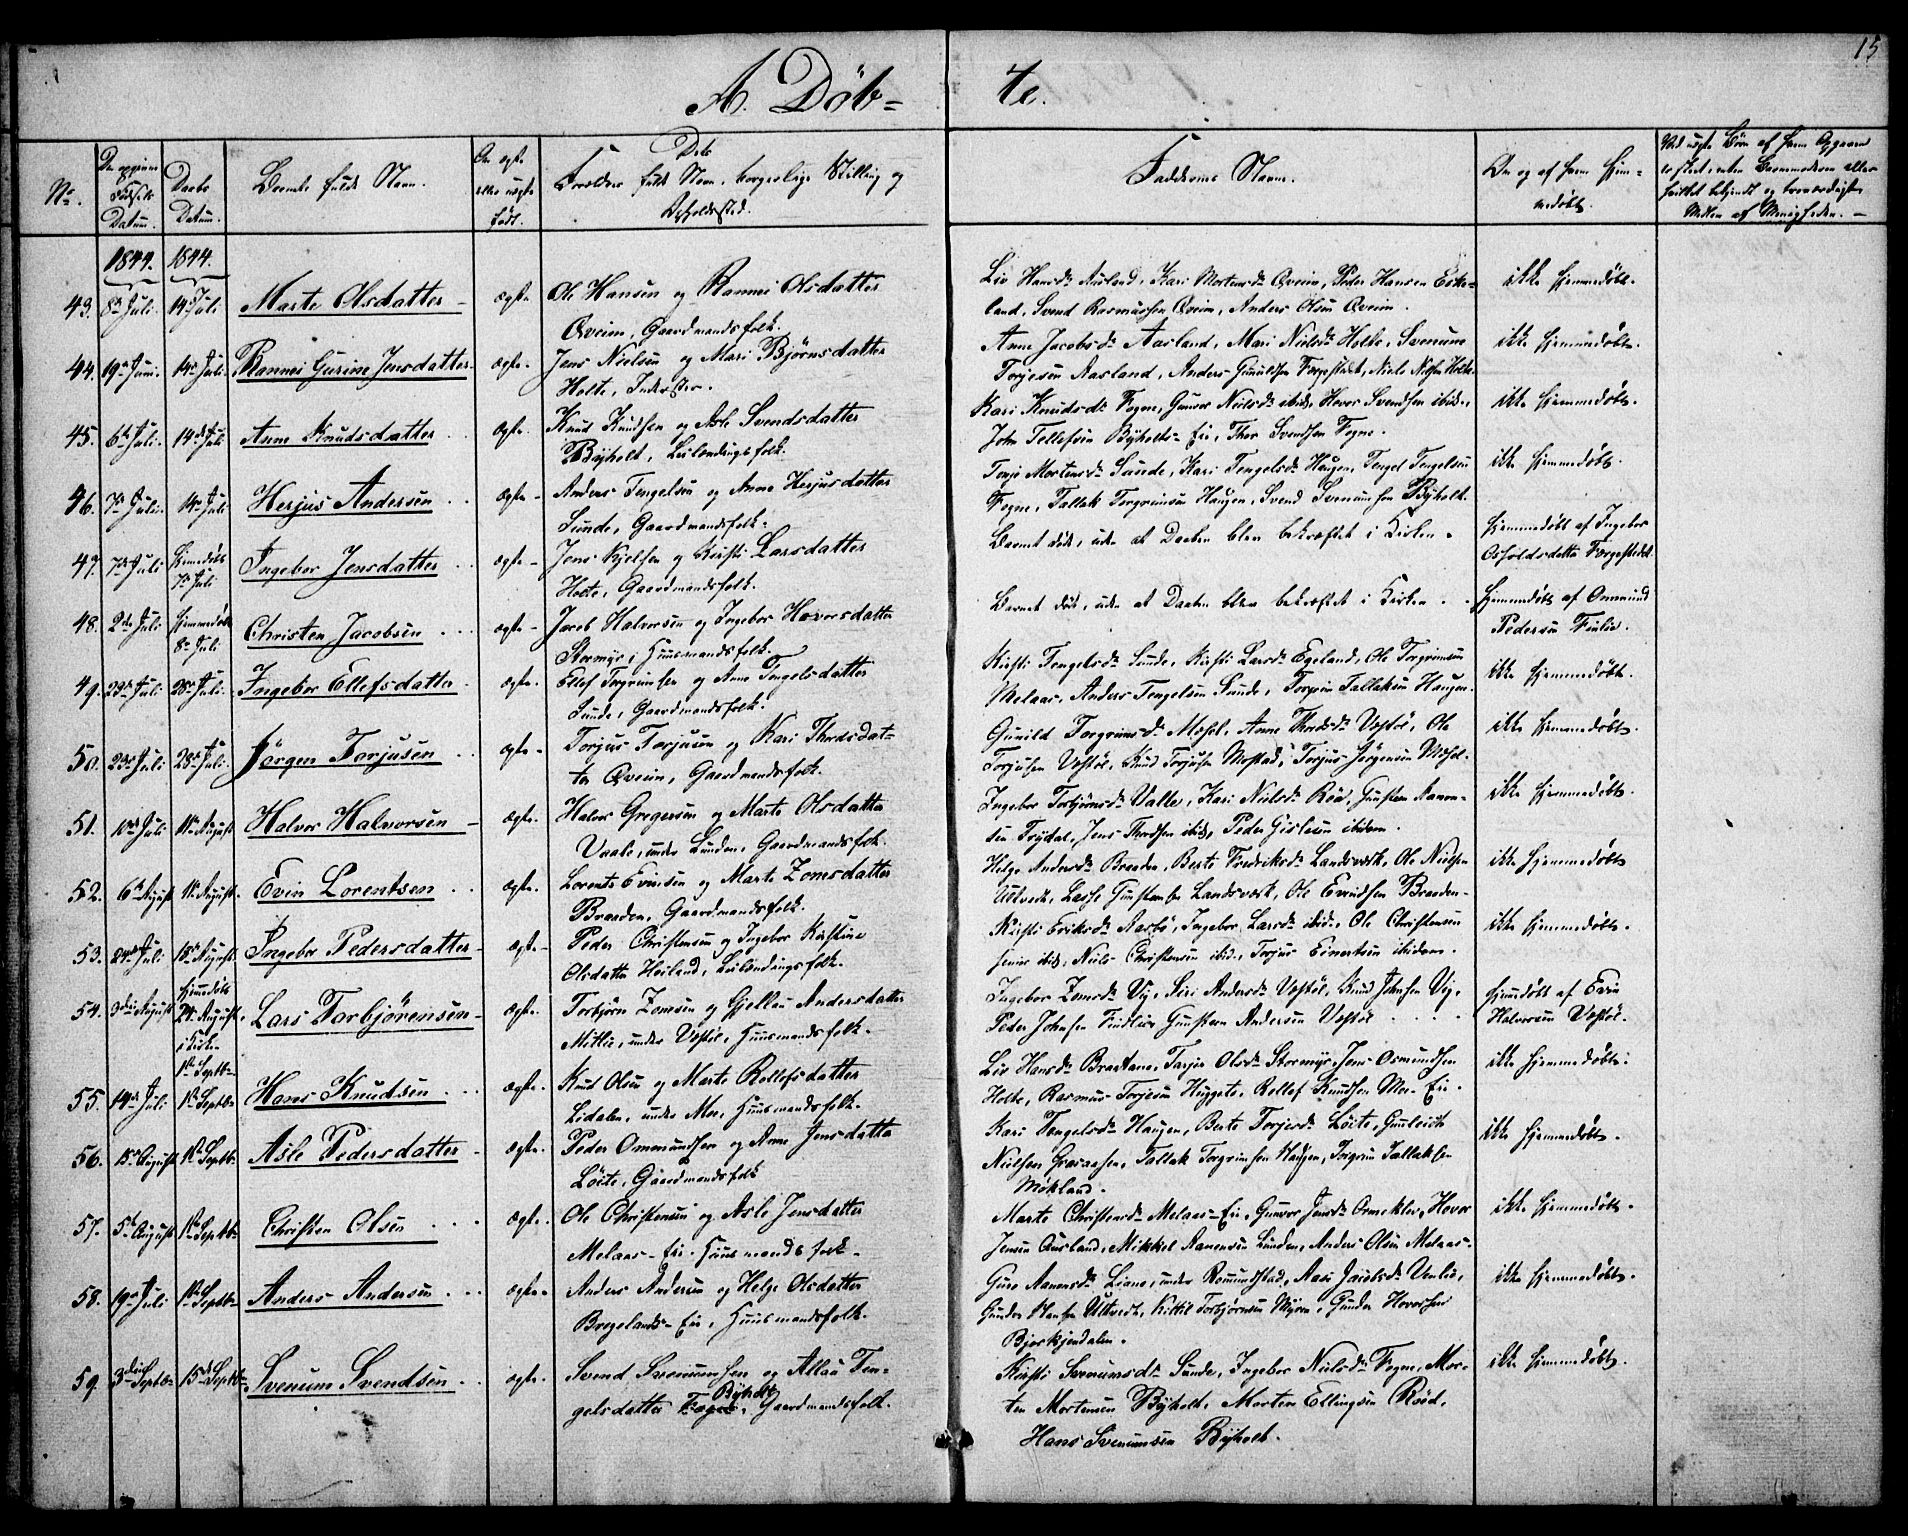 15
A. Döb-
te.
No.
Den opgivne Fødsels Datum.
Daabs Datum.
Barnets fulde Navn.
Om ægte eller uægte født.
Dets
Forældres fulde Navn, borgerlige Stilling og
Opholdssted.
Faddernes Navne.
Om og af hvem hjem-
medøbt.
1844. 1844.
43. 8de Juli. 14de Juli Marte Olsdatter ægte. Ole Hansen og Rannei Olsdatter
Qveim, Gaardmandsfolk.
Liv Hansdr Ausland, Kari Mortensdr Qveim, Peder Hansen Eske-
land, Svend Rasmussen Qveim, Anders Olsen Qveim.
ikke hjemmedøbt.
44. 19de Juni. 14de Juli Rannei Gurine Jensdatter ægte. Jens Nielsen og Mari Bjørnsdatter
Holte, Inderster.
Anne Jacobsdr Aasland, Mari Nielsdr Holte, Svenum
Torjesen Aasland, Anders Gunuldsen Færgestad, Niels Nilsen Holte
ikke hjemmedøbt.
45. 6te Juli. 14de Juli Anne Knudsdatter ægte. Knud Knudsen og Asle Svendsdatter
Byholt, Leilændingsfolk.
Kari Knudsdr Fogne, Gunvor Nielsdr ibid., Hover Svendsen ibid.,
John Tellefsen Byholts-Eie, Thor Svendsen Fogne.
ikke hjemmedøbt.
46. 7de Juli. 14de Juli Herjus Andersen ægte. Anders Tengelsen og Anne Herjusdatter
Sunde, Gaardmandsfolk.
Tonje Mortensdr Sunde, Kari Tengelsdr Haugen, Tengel Tengelsen
Fogne, Tallak Torgrimsen Haugen, Svend Svenumsen Byholt.
ikke hjemmedøbt.
47. 7de Juli Hjemmedøbt 7de Juli Ingebor Jensdatter ægte. Jens Kjelsen og Kirsti Larsdatter
Holte, Gaardmandsfolk.
Barnet døde, uden at Daaben blev bekræftet i Kirken.
Hjemmedøbt af Ingebor
Osholdsdatter Færgestad.
48. 2den Juli Hjemmedøbt 8de Juli Christen Jacobsen ægte. Jacob Halvorsen og Ingebor Hoversdatter
Stormyr, Huusmandsfolk.
Barnet døde, uden at Daaben blev bekræftet i Kirken.
Hjemmedøbt af Ommund
Pedersen Finlie.
49. 28de Juli. Ingebor Ellefsdatter ægte. Ellef Torgrimsen og Anne Tengelsdatter
Sunde, Gaardmandsfolk.
Kirsti Tengelsdr Sunde, Kirsti Larsdr Egeland, Ole Torgrimsen
Melaas, Anders Tengelsen Sunde, Torgrim Tallaksen Haugen.
ikke hjemmedøbt.
50. 23de Juli 28de Juli. Jørgen Torjusen ægte. Torjus Torjusen og Kari Thordsdat-
ter Qveim, Gaardmandsfolk.
Gunild Torgrimsdr Mæsel, Anne Thordsdr Vostöl, Ole
Torjusen Vostöl, Knud Torjusen Mostad, Torjus Jørgensen Mæsel.
ikke hjemmedøbt.
51. 10de Juli 11te August Halvor Halvorsen ægte. Halvor Gregersen og Marte Olsdatter
Vaale, under Lunden, Gaardmandsfolk.
Ingebor Torbjörnsdr Valle, Kari Nielsdr Röd, Gunsten Aanon-
sen Frydal, Jens Thordsen ibid, Peder Gislesen ibidem.
ikke hjemmedøbt.
52. 6te August 11te August. Evin Lorentsen ægte. Lorents Evinsen og Marte Zomsdatter
Braaden, Gaardmandsfolk.
Helge Andersdr Braaden, Berte Fredriksdr Landsværk, Ole Nielsen
Ultvedt, Lasse Gunstensen Landsværk, Ole Evindsen Braaden.
ikke hjemmedøbt
53. 24de Juli 18de August Ingebor Pedersdatter ægte. Peder Christensen og Ingebor Kirstine
Olsdatter Heiland, Leilændingsfolk.
Kirsti Eriksdr Aarbö, Ingebor Larsdr ibid., Ole Christensen
senior ibid, Niels Christensen ibid., Torjus Einertsen ibidem.
ikke hjemmedøbt.
54. 3die August Hjemmedøbt 24de August, i Kirken 1ste Septbr Lars Torbjörensen ægte. Torbjörn Zomsen og Gjellau Andersdatter
Mitlie, under Vostöl, Huusmandsfolk.
Ingebor Zomsdr Vig, Siri Andersdr Vostöl, Knud Johnsen Vig,
Peder Johnsen Findlie, Gunsten Andersen Vostöl
hjemmedøbt af Evin
Halvorsen Vostöl.
55. 14de Juli 1ste Septbr Hans Knudsen ægte. Knud Olsen og Marte Rollefsdatter
Lidalen, under Moe, Huusmandsfolk.
Liv Hansdr Braatane, Tarjer Olsdr Stormyr, Jens Osmundsen
Holte, Rasmus Torjesen Huggete, Rollef Knudsen Moe-Eie.
ikke hjemmedøbt.
56. 15de August 1ste Septbr. Asle Pedersdatter ægte. Peder Ommundsen og Anne Jensdatter
Löite, Gaardmandsfolk
Kari Tengelsdr Haugen, Berte Torjesdr Löite, Gunleich
Nielsen Gravaasen, Tallak Torgrimsen Haugen, Torgrim Tallaksen
Mökland.
ikke hjemmedøbt.
57. 5te August 1ste Septbr Christen Olsen ægte. Ole Christensen og Asle Jensdatter
Melaas-Eie, Huusmandsfolk.
Marte Christensdr Melaas-Eie, Gunvor Jensdr Ormekler, Hover
Jensen Ausland, Mikkel Aanensen Lunden, Anders Olsen Melaas.
ikke hjemmedøbt.
58. 19de Juli 1ste Septbr Anders Andersen ægte. Anders Andersen og Helge Olsdatter
Bregelands-Eie, Huusmandsfolk.
Guro Aanensdr Liane, under Romundstad, Aasi Jacobsdr Venlie,
Gunder Hansen Ultvedt, Kittil Torbjørnsen Myren, Gunder Hoversen
Bjorkjendalen.
ikke hjemmedøbt.
59. 3die Septbr 15de Septbr. Svenum Svendsen ægte. Svend Svenumsen og Allau Ten-
gelsdatter Fogne, Byholt Gaardmandsfolk.
Kirsti Svenumsdr Sunde, Ingebor Nielsdr Fogne, Mor-
ten Mortensen Byholt, Morten Ellingsen Röed,
Hans Svenumsen Byholt.
ikke hjemmedøbt.